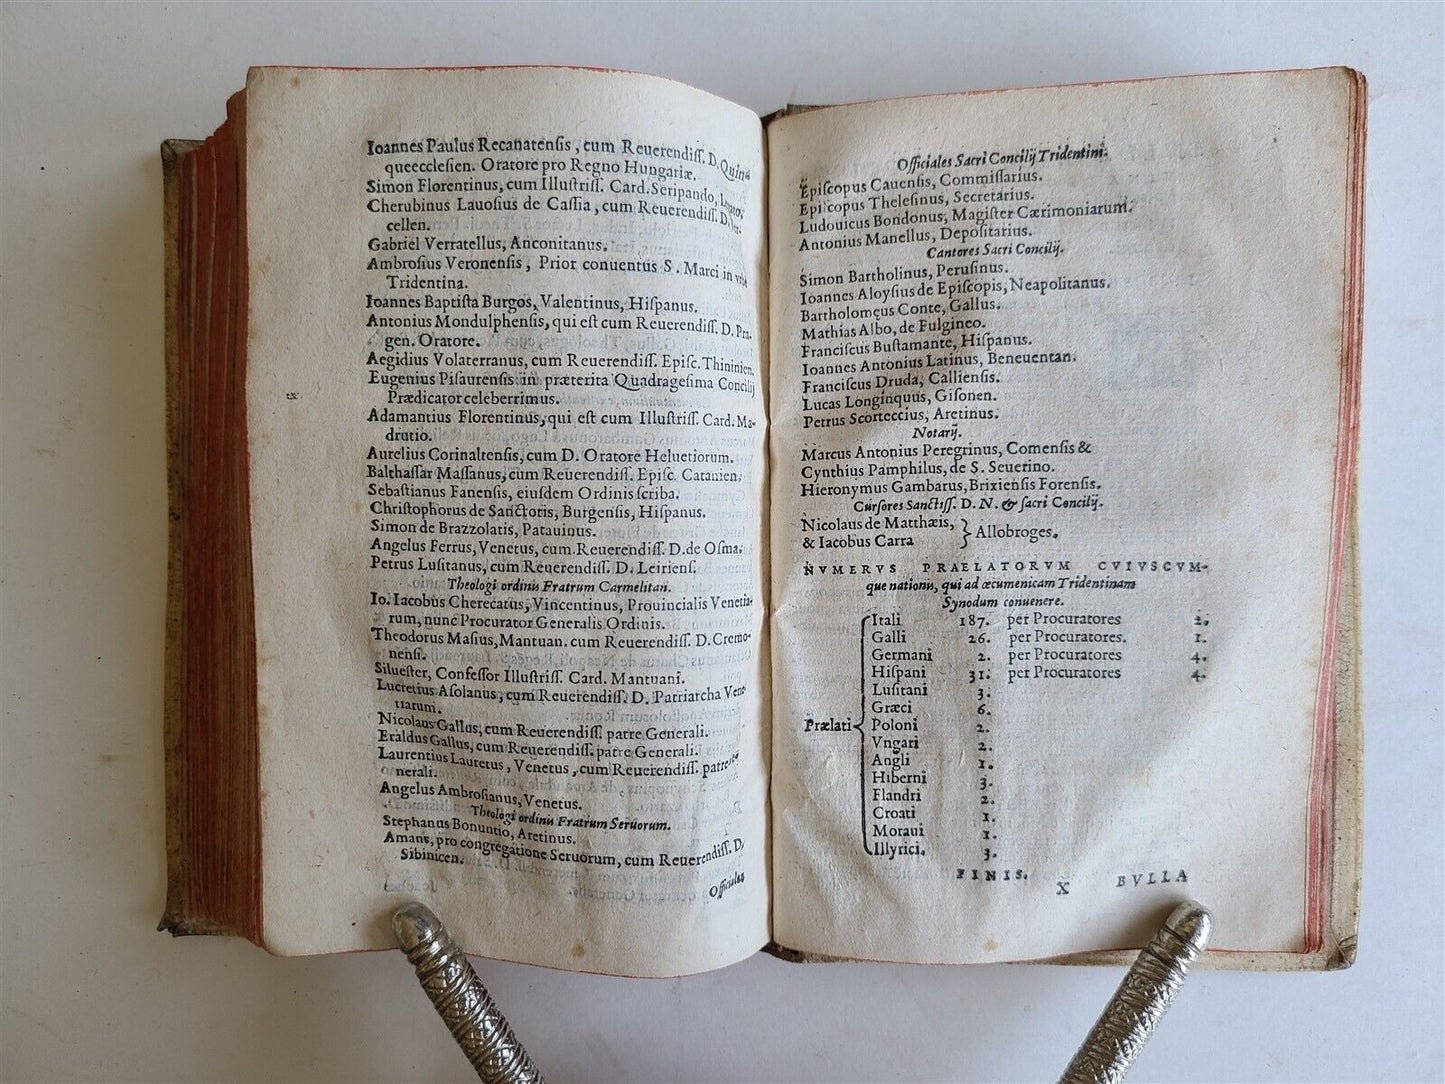 Ioannes Paulus Recanatensis, cum Reuerendiss. D. Quin-
queecclesien. Oratore pro Regno Hungariæ.
Simon Florentinus, cum Illustriss. Card. Seripando, Legato.
Cherubinus Lauosius de Cassia, cum Reuerendiss. D. Ver-
cellen.
Gabriel Verratellus, Anconitanus.
Ambrosius Veronensis, Prior conuentus S. Marci in vrbe
Tridentina.
Ioannes Baptista Burgos, Valentinus, Hispanus.
Antonius Mondulphensis, qui est cum Reuerendiss. D. Pra-
gen. Oratore.
Aegidius Volaterranus, cum Reuerendiss. Episc. Thininien.
Eugenius Pisaurensis in præterita Quadragesima Concilij
Prædicator celeberrimus.
Adamantius Florentinus, qui est cum Illustriss. Card. Ma-
drutio.
Aurelius Corinaltensis, cum D. Oratore Heluetiorum.
Balthassar Massanus, cum Reuerendiss. Episc. Catanien.
Sebastianus Fanensis, eiusdem Ordinis scriba.
Christophorus de Sanctotis, Burgensis, Hispanus.
Simon de Brazzolatis, Patauinus.
Angelus Ferrus, Venetus, cum Reuerendiss. D. de Osma.
Petrus Lusitanus, cum Reuerendiss. D. Leiriens.
Theologi ordinis Fratrum Carmelitan.
Io. Iacobus Cherecatus, Vincentinus, Prouincialis Venetia-
rum, nunc Procurator Generalis Ordinis.
Theodorus Masius, Mantuan. cum Reuerendiss. D. Cremo-
nensi.
Siluester, Confessor Illustriss. Card. Mantuani.
Lucretius Asolanus, cum Reuerendiss. D. Patriarcha Vene-
tiarum.
Nicolaus Gallus, cum Reuerendiss. patre Generali.
Eraldus Gallus, cum Reuerendiss. patre Generali.
Laurentius Lauretus, Venetus, cum Reuerendiss. patre ge-
nerali.
Angelus Ambrosianus, Venetus.
Theologi ordinis Fratrum Seruorum.
Stephanus Bonuntio, Aretinus.
Amans, pro congregatione Seruorum, cum Reuerendiss. D.
Sibinicen.
Officiales
Officiales Sacri Concilij Tridentini.
Episcopus Cauensis, Commissarius.
Episcopus Thelesinus, Secretarius.
Ludouicus Bondonus, Magister Cærimoniarum.
Antonius Manellus, Depositarius.
Cantores Sacri Concilij.
Simon Bartholinus, Perusinus.
Ioannes Aloysius de Episcopis, Neapolitanus.
Bartholomęus Conte, Gallus.
Mathias Albo, de Fulgineo.
Franciscus Bustamante, Hispanus.
Ioannes Antonius Latinus, Beneuentan.
Franciscus Druda, Calliensis.
Lucas Longinquus, Gisonen.
Petrus Scorteccius, Aretinus.
Notarij.
Marcus Antonius Peregrinus, Comensis &
Cynthius Pamphilus, de S. Seuerino.
Hieronymus Gambarus, Brixiensis Forensis.
Cursores Sanctiss. D. N. & sacri Concilij.
Nicolaus de Matthæis,
& Iacobus Carra } Allobroges.
NVMERVS PRAELATORVM CVIVSCVM-
que nationis, qui ad œcumenicam Tridentinam
Synodum conuenere.
Itali 187. per Procuratores 2.
Galli 26. per Procuratores. 1.
Germani 2. per Procuratores 4.
Hispani 31. per Procuratores 4.
Lusitani 3.
Græci 6.
Prælati { Poloni 2.
Vngari 2.
Angli 1.
Hiberni 3.
Flandri 2.
Croati 1.
Moraui 1.
Illyrici. 3.
FINIS.
X BVLLA